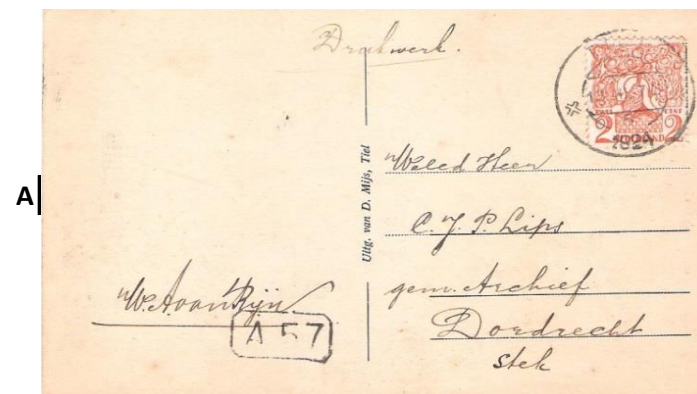 Drukwerk.
A
1924
2 CENT 2
Uitg. van D. Mijs, Tiel
Weled Heer
C. J. P. Lips
gem. Archief
Dordrecht
stek
W. A van Rijn
A 57